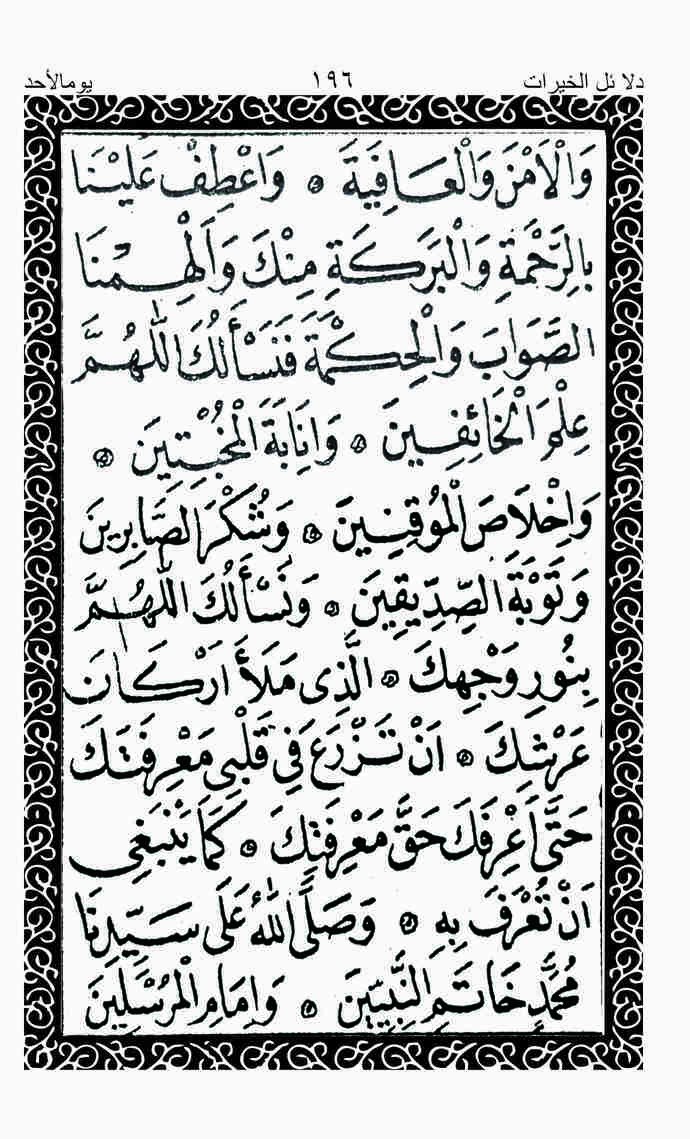 دلائل الخيرات ١٩٦ يوم الأحد
وَالْاَمْنَ وَالْعَافِيَةَ ۞ وَاعْطِفْ عَلَيْنَا
بِالرَّحْمَةِ وَالْبَرَكَةِ مِنْكَ وَاَلْهِمْنَا
الصَّوَابَ وَالْحِكْمَةَ فَنَسْأَلُكَ اللّٰهُمَّ
عِلْمَ الْخَائِفِينَ ۞ وَاِنَابَةَ الْمُخْبِتِينَ ۞
وَاِخْلَاصَ الْمُوقِنِينَ ۞ وَشُكْرَ الصَّابِرِينَ
وَتَوْبَةَ الصِّدِّيقِينَ ۞ وَنَسْأَلُكَ اللّٰهُمَّ
بِنُورِ وَجْهِكَ ۞ الَّذِى مَلَأَ اَرْكَانَ
عَرْشِكَ ۞ اَنْ تَزْرَعَ فِى قَلْبِى مَعْرِفَتَكَ
حَتّٰى اَعْرِفَكَ حَقَّ مَعْرِفَتِكَ ۞ كَمَا يَنْبَغِى
اَنْ تُعْرَفَ بِهِ ۞ وَصَلَّى اللّٰهُ عَلَى سَيِّدِنَا
مُحَمَّدٍ خَاتَمِ النَّبِيِّينَ ۞ وَاِمَامِ الْمُرْسَلِينَ